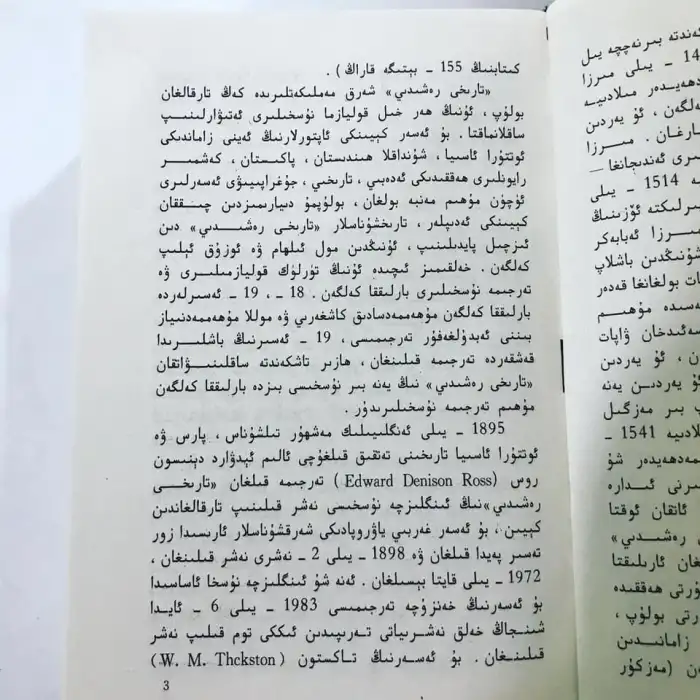 كىتابنىڭ 155 ـ بېتىگە قاراڭ) .
«تارىخى رەشىدىي» شەرق مەملىكەتلىرىدە كەڭ تارقالغان
بولۇپ ، ئۇنىڭ ھەر خىل قوليازما نۇسخىلىرى ئەتىۋارلىنىپ
ساقلانماقتا . بۇ ئەسەر كېيىنكى ئاپتورلارنىڭ ئەينى زاماندىكى
ئوتتۇرا ئاسىيا ، شۇنداقلا ھىندىستان ، پاكىستان ، كەشمىر
رايونلىرى ھەققىدىكى ئەدەبىي ، تارىخىي ، جۇغراپىيىۋى ئەسەرلىرى
ئۈچۈن مۇھىم مەنبە بولغان ، بولۇپمۇ دىيارىمىزدىن چىققان
كېيىنكى ئەدىپلەر ، تارىخشۇناسلار «تارىخى رەشىدىي» دىن
ئىزچىل پايدىلىنىپ ، ئۇنىڭدىن مول ئىلھام ۋە ئوزۇق ئېلىپ
كەلگەن . خەلقىمىز ئىچىدە ئۇنىڭ تۈرلۈك قوليازمىلىرى ۋە
تەرجىمە نۇسخىلىرى بارلىققا كەلگەن . 18 ـ ، 19 ـ ئەسىرلەردە
بارلىققا كەلگەن مۇھەممەدسادىق كاشغەرىي ۋە موللا مۇھەممەدنىياز
بىننى ئەبدۇلغەفۇر تەرجىمىسى ، 19 ـ ئەسىرنىڭ باشلىرىدا
قەشقەردە تەرجىمە قىلىنغان ، ھازىر تاشكەندتە ساقلىنىۋاتقان
«تارىخى رەشىدىي» نىڭ يەنە بىر نۇسخىسى بىزدە بارلىققا كەلگەن
مۇھىم تەرجىمە نۇسخىلىرىدۇر .
1895 ـ يىلى ئەنگلىيىلىك مەشھۇر تىلشۇناس ، پارس ۋە
ئوتتۇرا ئاسىيا تارىخىنى تەتقىق قىلغۇچى ئالىم ئېدۋارد دېنىسون
روس (Edward Denison Ross) تەرجىمە قىلغان «تارىخىي
رەشىدىي»نىڭ ئىنگلىزچە نۇسخىسى نەشر قىلىنىپ تارقالغاندىن
كېيىن ، بۇ ئەسەر غەربىي ياۋروپادىكى شەرقشۇناسلار ئارىسىدا زور
تەسىر پەيدا قىلغان ۋە 1898 ـ يىلى 2 ـ نەشرى نەشر قىلىنغان ،
1972 ـ يىلى قايتا بېسىلغان . ئەنە شۇ ئىنگلىزچە نۇسخا ئاساسىدا
بۇ ئەسەرنىڭ خەنزۇچە تەرجىمىسى 1983 ـ يىلى 6 ـ ئايدا
شىنجاڭ خەلق نەشرىياتى تەرىپىدىن ئىككى توم قىلىپ نەشر
قىلىنغان . بۇ ئەسەرنىڭ تاكىستون (W. M. Thckston)
3
كەندتە بىرنەچچە يىل
ـ يىلى مىرزا
مىلادىيە
كەلگەن ، ئۇ يەردىن
بارغان . مىرزا
ئەندىجانغا —
1514 ـ يىلى
بىرلىكتە ئۆزىنىڭ
مىرزا ئەبابەكر
شۇنىڭدىن باشلاپ
بولغانغا قەدەر
مۇھىم
سەئىدخان ۋاپات
، ئۇ يەردىن
ئۇ يەردىن يەنە
بىر مەزگىل
1541 ـ
شۇ
ئىدارە
ئاتقان ئوقتا
رەشىدىي»
ئارىلىقتا
ھەققىدە
بولۇپ ،
زامانىدىن
(مەزكۇر